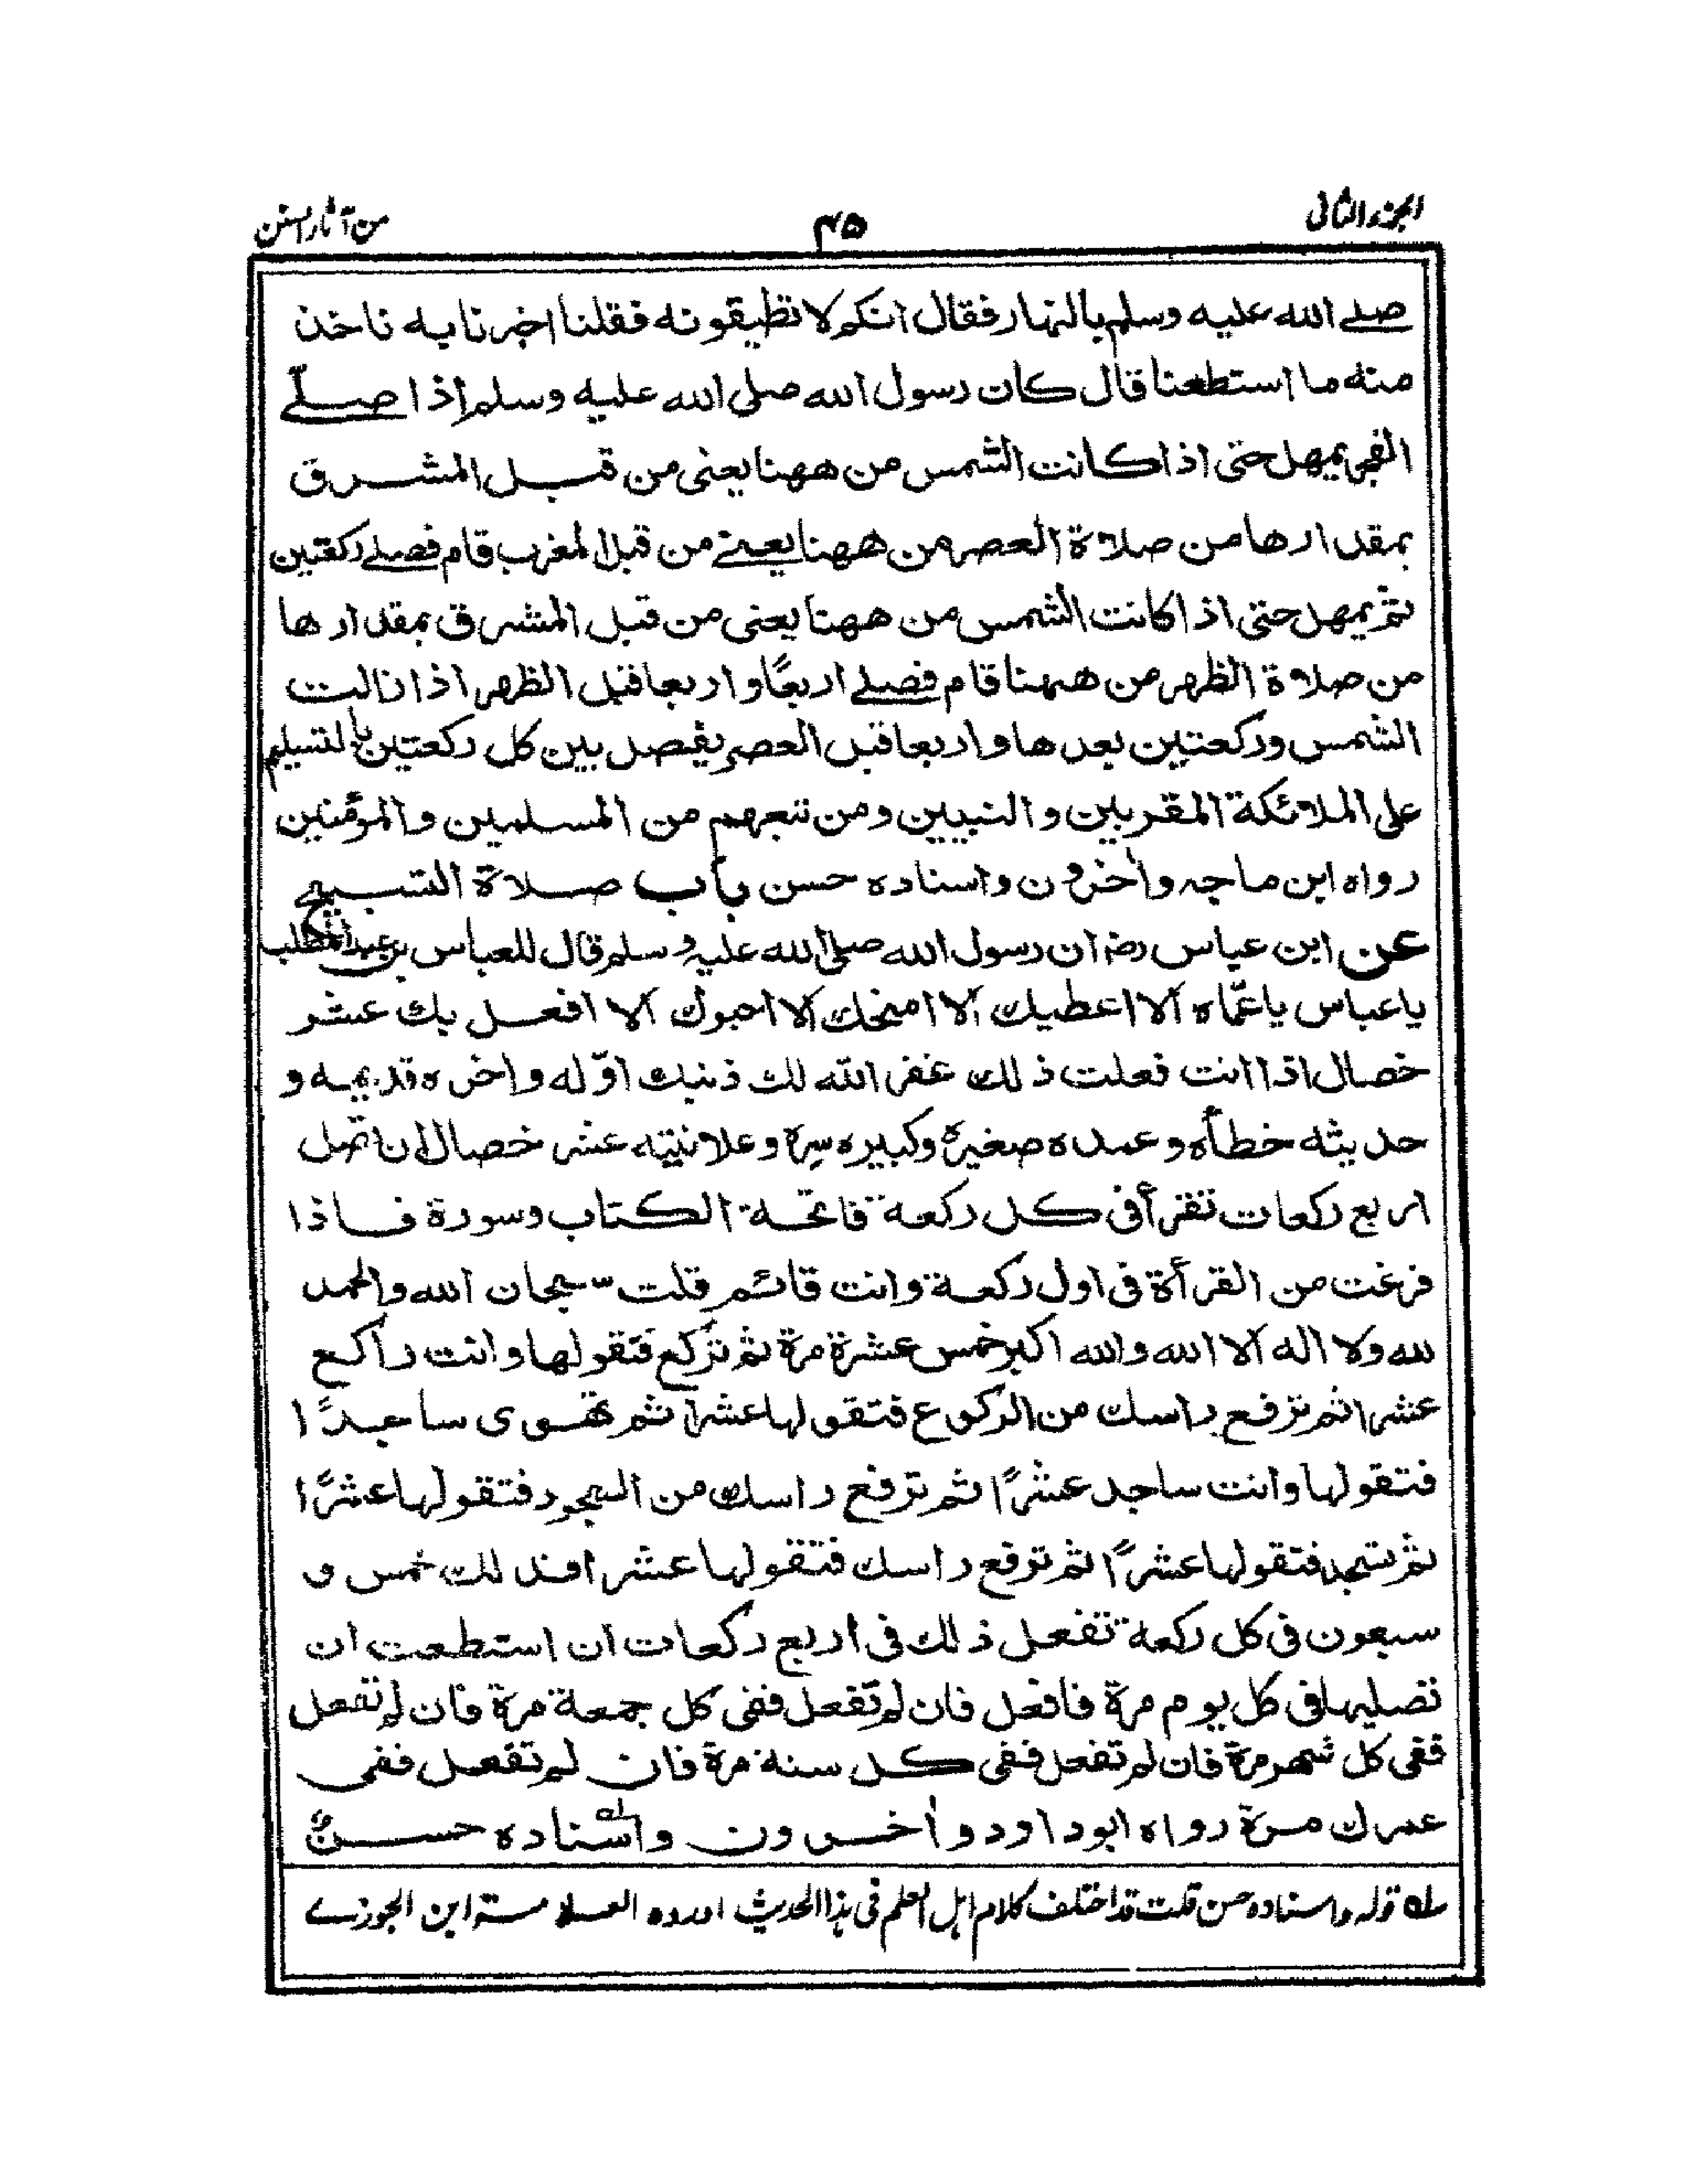 الجزء الثانی
۴۵
من آثار السنن
صلے الله عليه وسلم بالنهار فقال انكم لا تطيقونه فقلنا اخبرنا به ناخذ
منه ما استطعنا قال كان رسول الله صلى الله عليه وسلم اذا صلّے
الفجر يمهل حتى اذا كانت الشمس من ههنا يعنى من قبل المشرق
بمقدارها من صلاة العصر من ههنا يعنے من قبل المغرب قام فصلے ركعتين
ثم يمهل حتى اذا كانت الشمس من ههنا يعنى من قبل المشرق بمقدارها
من صلاة الظهر من ههنا قام فصلے اربعًا واربعا قبل الظهر اذا زالت
الشمس وركعتين بعدها واربعا قبل العصر يفصل بين كل ركعتين بالتسليم
على الملائكة المقربين والنبيين ومن تبعهم من المسلمين والمؤمنين
رواه ابن ماجه وأخرون واسناده حسن باب صلاة التسبيح
عن ابن عباس رضـ ان رسول الله صلى الله عليه وسلم قال للعباس بن عبد المطلب
يا عباس يا عمّاه ألا اعطيك ألا امنحك ألا احبوك ألا افعل بك عشر
خصال اذا انت فعلت ذلك غفر الله لك ذنبك اوّله واخره قديمه و
حديثه خطأه وعمده صغيره وكبيره سره وعلانيته عشر خصال ان تصل
اربع ركعات تقرأ فى كل ركعة فاتحة الكتاب وسورة فاذا
فرغت من القرأة فى اول ركعة وانت قائم قلت سبحان الله والحمد
لله ولا اله الا الله والله اكبر خمس عشرة مرة ثم تركع فتقولها وانت راكع
عشرا ثم ترفع راسك من الركوع فتقولها عشرا ثم تهوى ساجدًا
فتقولها وانت ساجد عشرًا ثم ترفع راسك من السجود فتقولها عشرًا
ثم تسجد فتقولها عشرًا ثم ترفع راسك فتقولها عشرا فذلك خمس و
سبعون فى كل ركعة تفعل ذلك فى اربع ركعات ان استطعت ان
تصليها فى كل يوم مرة فافعل فان لم تفعل ففى كل جمعة مرة فان لم تفعل
ففى كل شهر مرة فان لم تفعل ففى كل سنة مرة فان لم تفعل ففى
عمرك مرة رواه ابو داود وأخرون واسناده حسن
سله قوله واسناده حسن قلت قد اختلف كلام اهل العلم فى هذا الحديث اورده العلامة ابن الجوزے